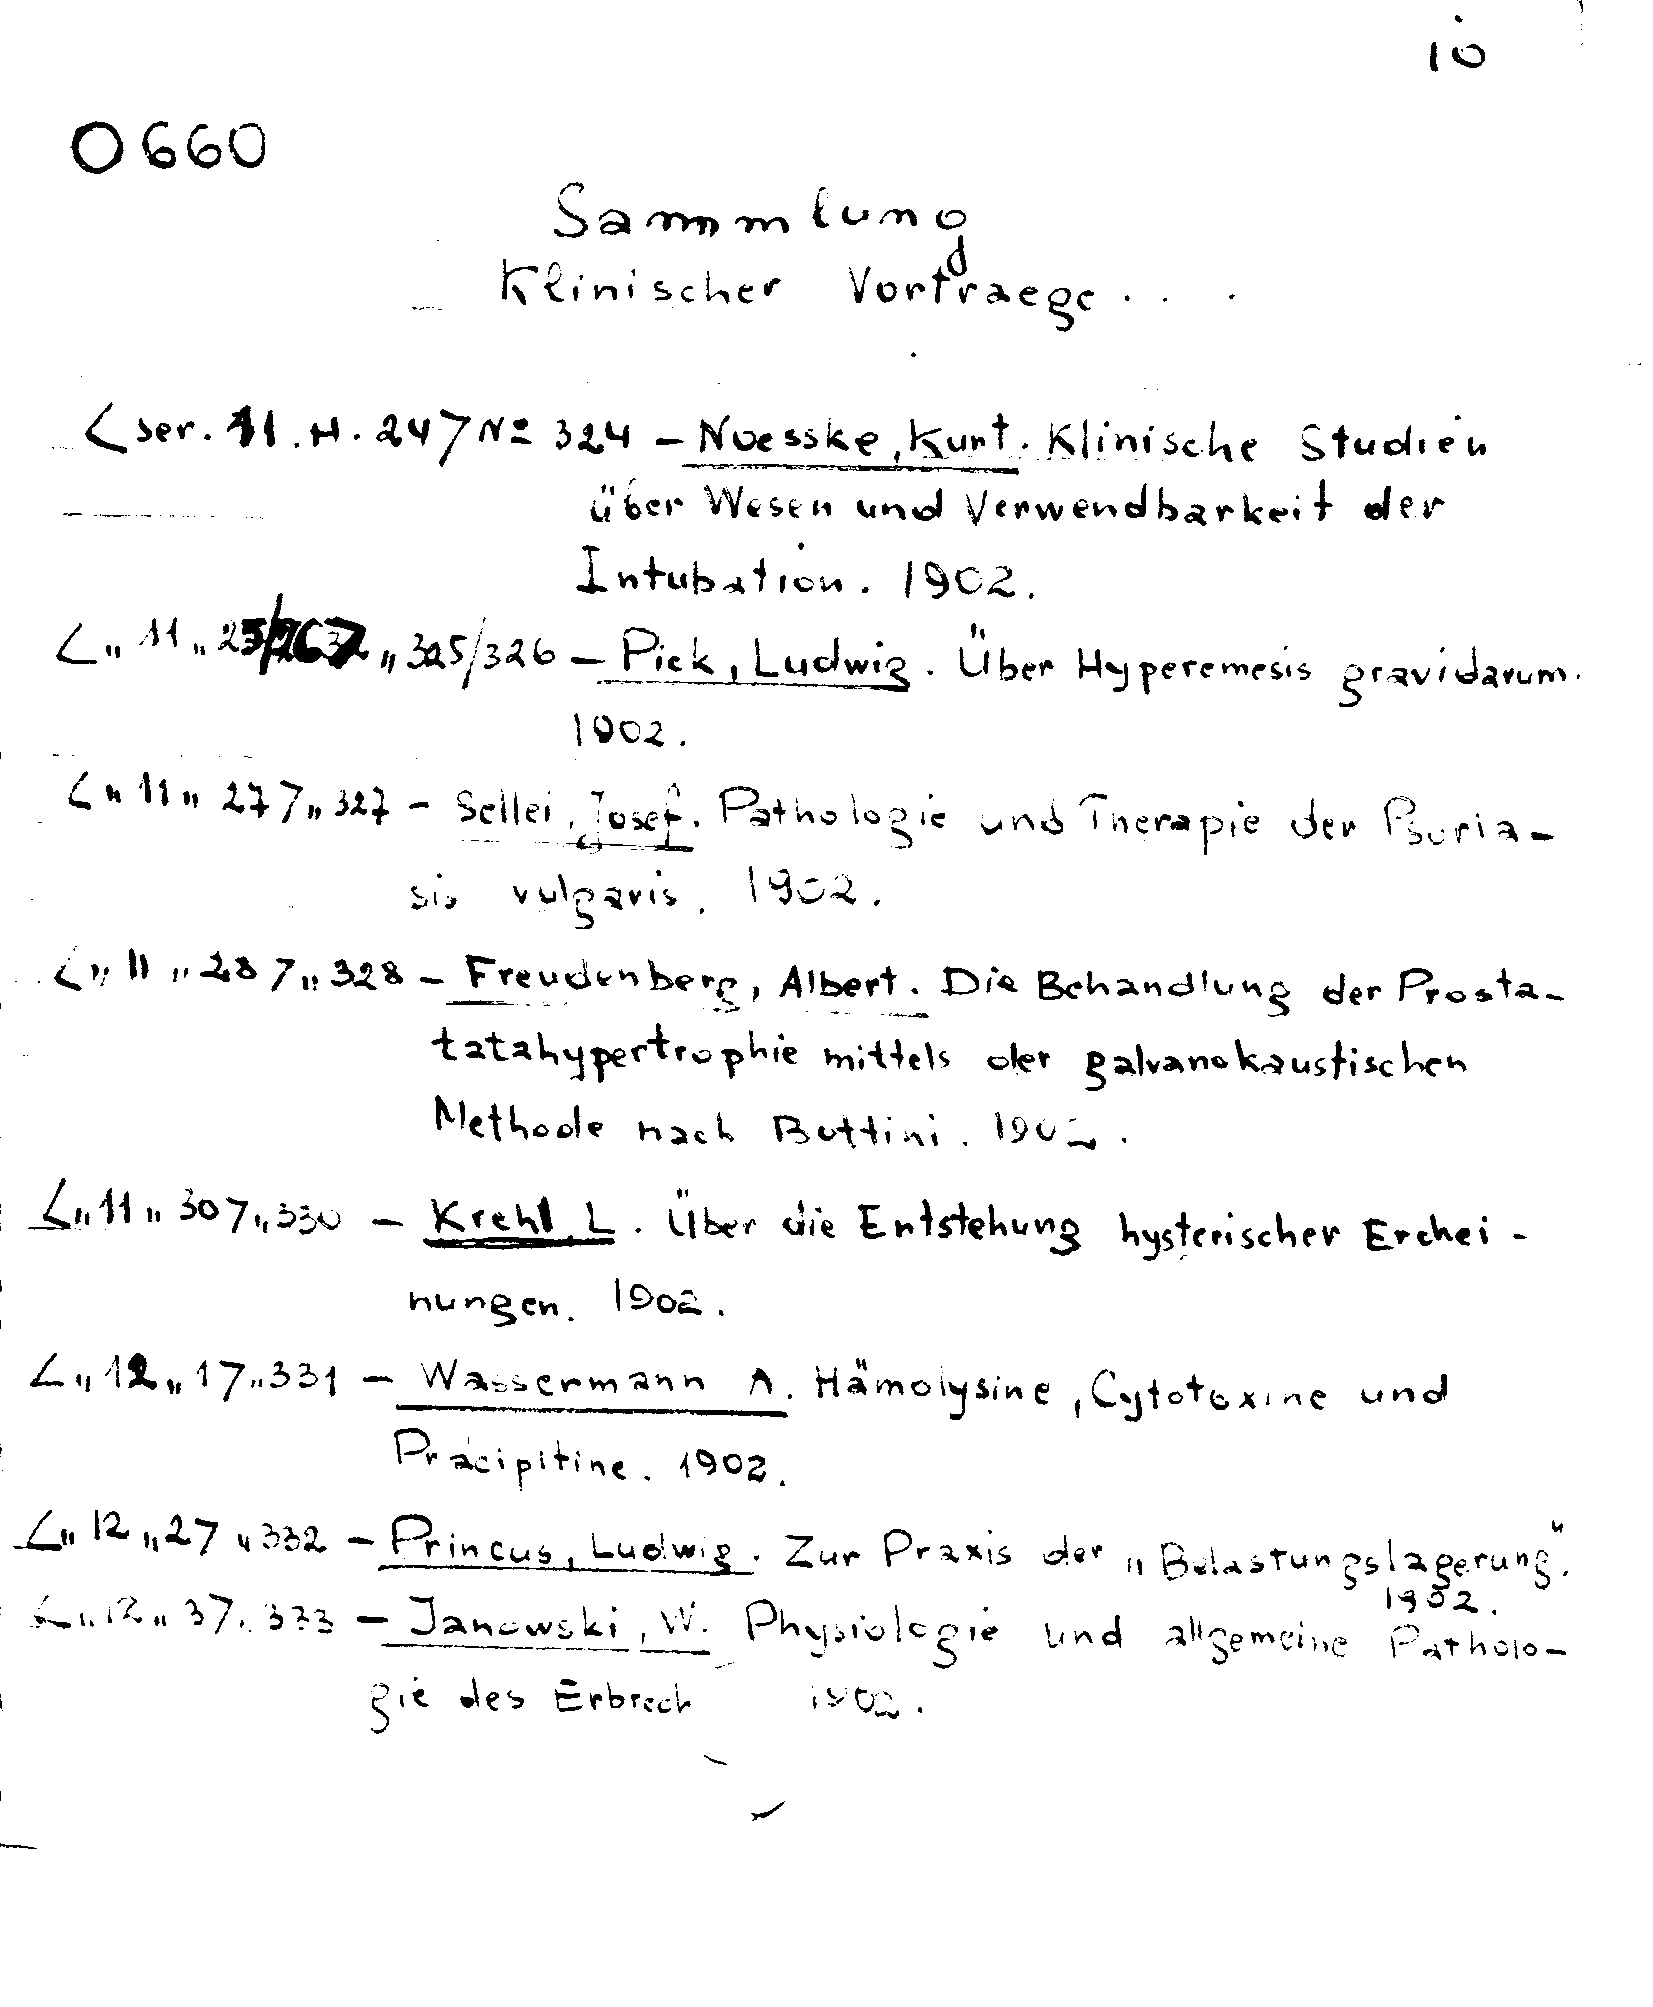 10
O 660
Sammlung
Klinischer Vortraege . . .
< ser. 11. H. 24 7 No 324 – Noesske, Kurt. Klinische Studien
über Wesen und Verwendbarkeit der
Intubation. 1902.
< „ 11 „ 25/26 7 „ 325/326 – Pick, Ludwig. Über Hyperemesis gravidarum.
1902.
< „ 11 „ 27 7 „ 327 – Sellei, Josef. Pathologie und Therapie der Psoria-
sis vulgaris. 1902.
< „ 11 „ 28 7 „ 328 – Freudenberg, Albert. Die Behandlung der Prosta-
tatahypertrophie mittels der galvanokaustischen
Methode nach Bottini. 1902.
< „ 11 „ 30 7 „ 330 – Krehl, L. Über die Entstehung hysterischer Erchei-
nungen. 1902.
< „ 12 „ 1 7 „ 331 – Wassermann A. Hämolysine, Cytotoxine und
Präcipitine. 1902.
< „ 12 „ 2 7 „ 332 – Princus, Ludwig. Zur Praxis der „Belastungslagerung".
1902.
< „ 12 „ 3 7 „ 333 – Janowski, W. Physiologie und allgemeine Patholo-
gie des Erbrech 1902.